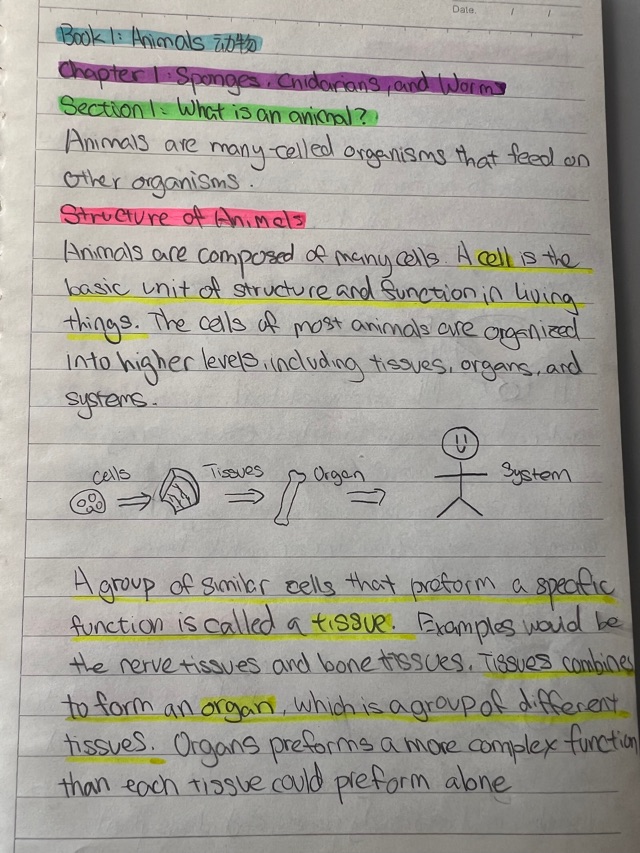 Date. / /
Book 1: Animals 动物
Chapter 1: Sponges, Cnidarians, and Worms
Section 1: What is an animal?
Animals are many-celled organisms that feed on
other organisms.
Structure of Animals
Animals are composed of many cells. A cell is the
basic unit of structure and function in living
things. The cells of most animals are organized
into higher levels, including tissues, organs, and
systems.
cells Tissues Organ System
A group of similar cells that preform a specific
function is called a tissue. Examples would be
the nerve tissues and bone tissues. Tissues combines
to form an organ, which is a group of different
tissues. Organs preforms a more complex function
than each tissue could preform alone